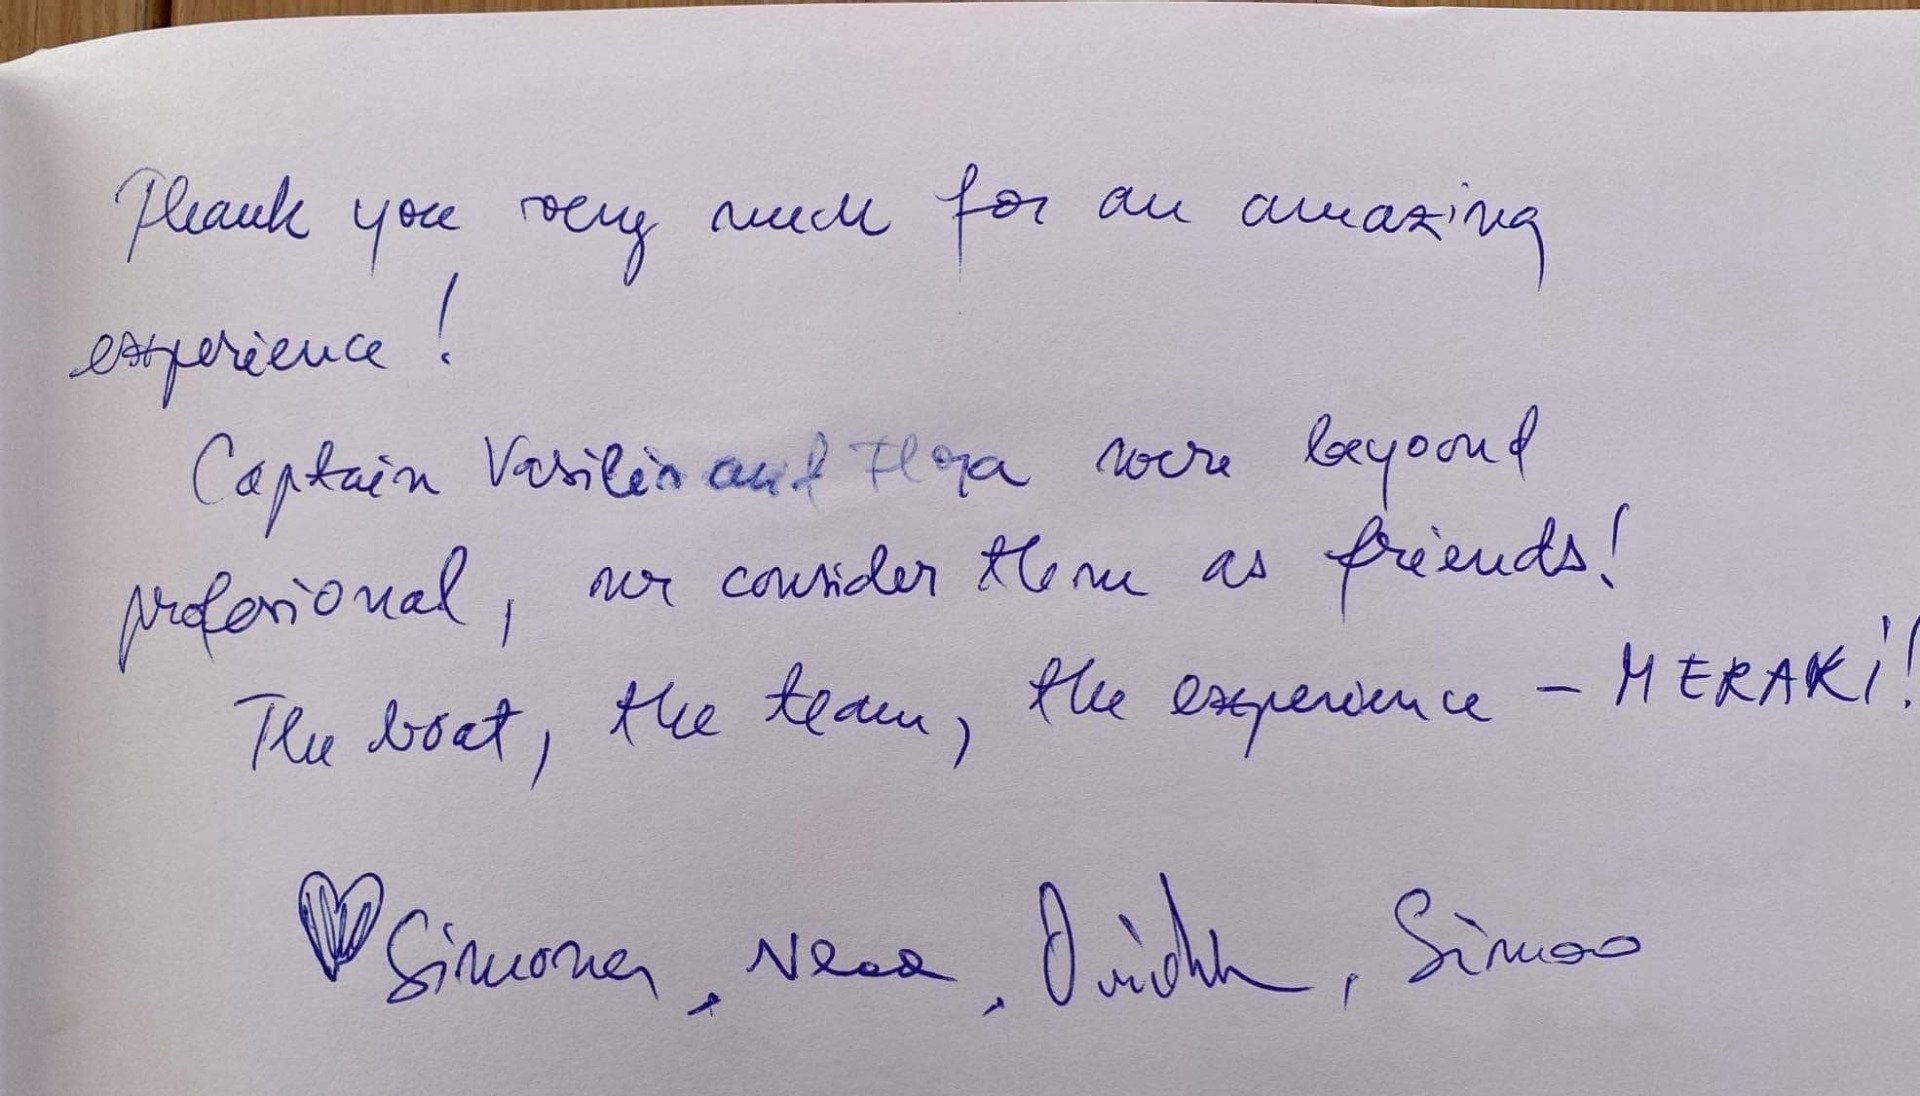 Thank you very much for an amazing
experience!
Captain Vasilis and were beyoond
profesional, we consider them as friends!
The boat, the team, the experience - MERAKi!
Simona, , , Simoo